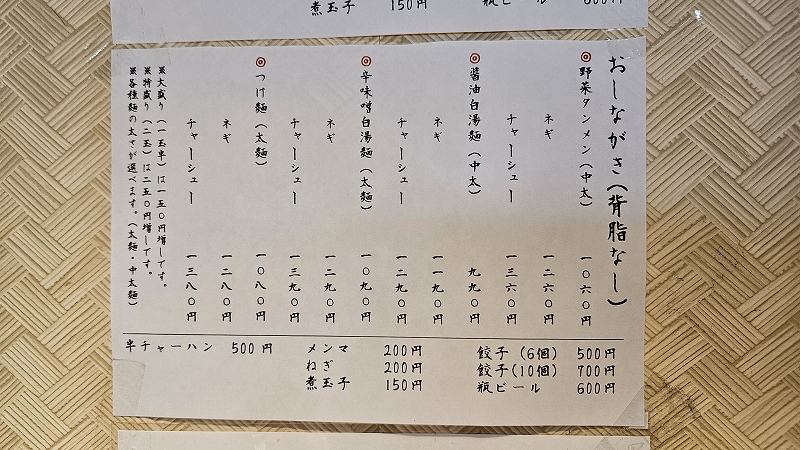 煮玉子 150円
瓶ビール 600円
おしながき(背脂なし)
◎野菜タンメン(中太) 一〇六〇円
ネギ 一二六〇円
チャーシュー 一三六〇円
◎醤油白湯麺(中太) 九九〇円
ネギ 一一九〇円
チャーシュー 一二九〇円
◎辛味噌白湯麺(太麺) 一〇九〇円
ネギ 一二九〇円
チャーシュー 一三九〇円
◎つけ麺(太麺) 一〇八〇円
ネギ 一二八〇円
チャーシュー 一三八〇円
※大盛り(一玉半)は一五〇円増しです。
※特盛り(二玉)は二五〇円増しです。
※各種麺の太さが選べます。(太麺・中太麺)
半チャーハン 500円
メンマ 200円
ねぎ 200円
煮玉子 150円
餃子(6個) 500円
餃子(10個) 700円
瓶ビール 600円